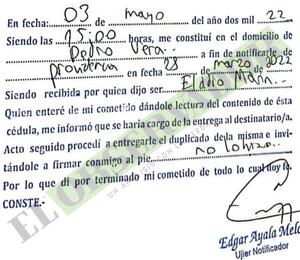 En fecha: 03 de mayo del año dos mil 22
Siendo las 15:00 horas, me constituí en el domicilio de
Pedro Vera a fin de notificarle de
providencia en fecha 28 de marzo 2022
Siendo recibida por quien dijo ser Elidio Marin.
Quien enteré de mi cometido dándole lectura del contenido de ésta
cédula, me informó que se haría cargo de la entrega al destinatario/a.
Acto seguido procedí a entregarle el duplicado de la misma e invi-
tándole a firmar conmigo al pie no lo hizo
Por lo que di por terminado mi cometido de todo lo cual doy fe.
CONSTE.-
Edgar Ayala Melg
Ujier Notificador